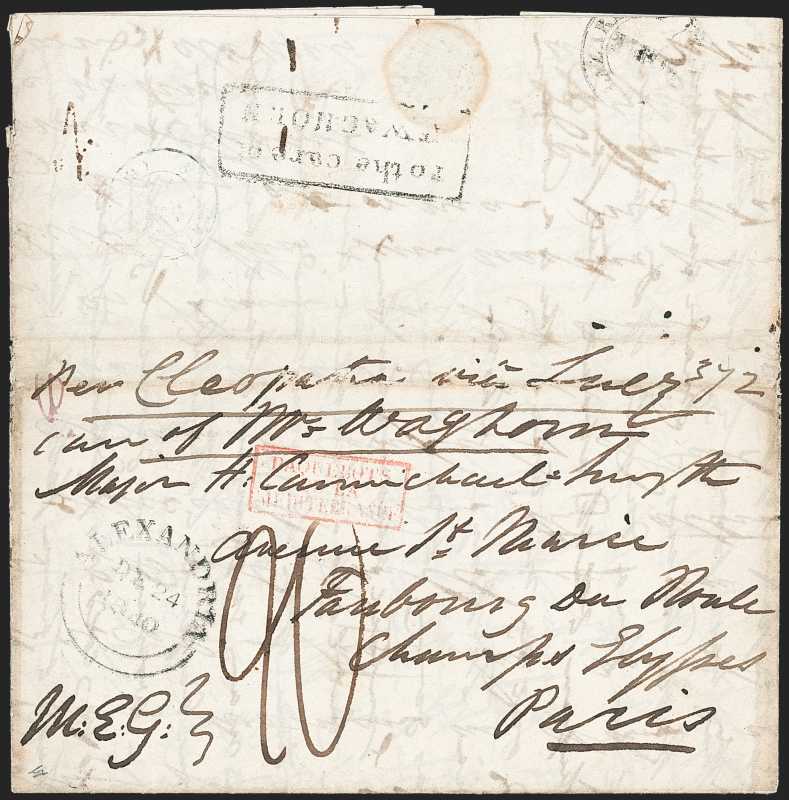 To the care of
WAGHORN
Per Cleopatra via Suez
care of Mr Waghorn
Major H: Carmichael=Smyth
PAQUEBOTS
DE LA
MEDITERRANEE
Avenue St. Marie
ALEXANDRIA
DE 24
1840
20
Faubourg Du Roule
Champs Elysses
M:E:G:
Paris